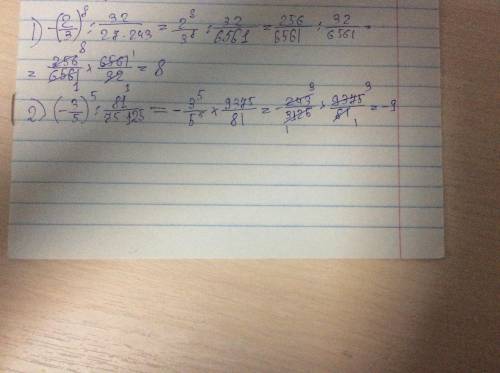 1) -(2/3)^8 : 32/(28·243) = 2^8/3^8 : 32/6561 = 256/6561 : 32/6561 =
= 256/6561 × 6561/32 = 8
2) (-3/5)^5 : 81/(75·125) = -3^5/5^5 × 9375/81 = -243/3125 × 9375/81 = -9